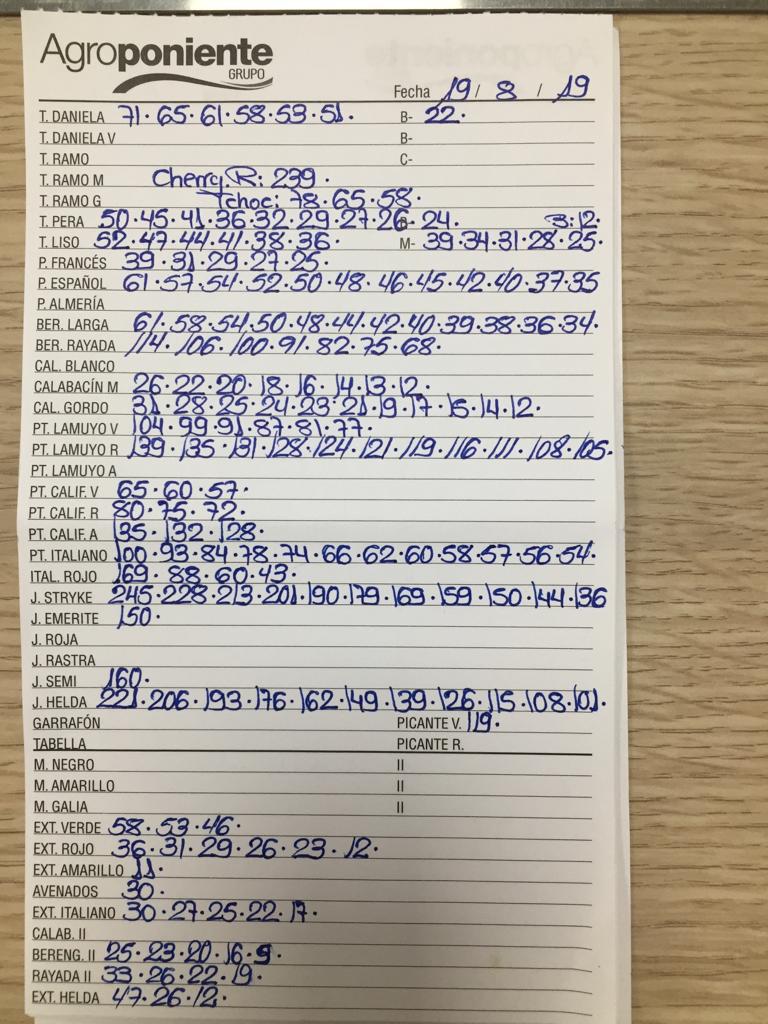 Agroponiente
GRUPO
Fecha 19 / 8 / 19
T. DANIELA 71. 65. 61. 58. 53. 51. B- 22.
T. DANIELA V B-
T. RAMO C-
T. RAMO M Cherry. R: 239.
T. RAMO G Tchoc: 78. 65. 58.
T. PERA 50. 45. 41. 36. 32. 29. 27. 26. 24. B: 12.
T. LISO 52. 47. 44. 41. 38. 36. M- 39. 34. 31. 28. 25.
P. FRANCÉS 39. 31. 29. 27. 25.
P. ESPAÑOL 61. 57. 54. 52. 50. 48. 46. 45. 42. 40. 37. 35
P. ALMERÍA
BER. LARGA 61. 58. 54. 50. 48. 44. 42. 40. 39. 38. 36. 34.
BER. RAYADA 114. 106. 100. 91. 82. 75. 68.
CAL. BLANCO
CALABACÍN M 26. 22. 20. 18. 16. 14. 13. 12.
CAL. GORDO 31. 28. 25. 24. 23. 21. 19. 17. 15. 14. 12.
PT. LAMUYO V 104. 99. 91. 87. 81. 77.
PT. LAMUYO R 139. 135. 131. 128. 124. 121. 119. 116. 111. 108. 105.
PT. LAMUYO A
PT. CALIF. V 65. 60. 57.
PT. CALIF. R 80. 75. 72.
PT. CALIF. A 135. 132. 128.
PT. ITALIANO 100. 93. 84. 78. 74. 66. 62. 60. 58. 57. 56. 54.
ITAL. ROJO 169. 88. 60. 43.
J. STRYKE 245. 228. 213. 201. 190. 179. 169. 159. 150. 144. 136
J. EMERITE 150.
J. ROJA
J. RASTRA
J. SEMI 160.
J. HELDA 221. 206. 193. 176. 162. 149. 139. 126. 115. 108. 101.
GARRAFÓN PICANTE V. 119.
TABELLA PICANTE R.
M. NEGRO II
M. AMARILLO II
M. GALIA II
EXT. VERDE 58. 53. 46.
EXT. ROJO 36. 31. 29. 26. 23. 12.
EXT. AMARILLO 11.
AVENADOS 30.
EXT. ITALIANO 30. 27. 25. 22. 17.
CALAB. II
BERENG. II 25. 23. 20. 16. 9.
RAYADA II 33. 26. 22. 19.
EXT. HELDA 47. 26. 12.